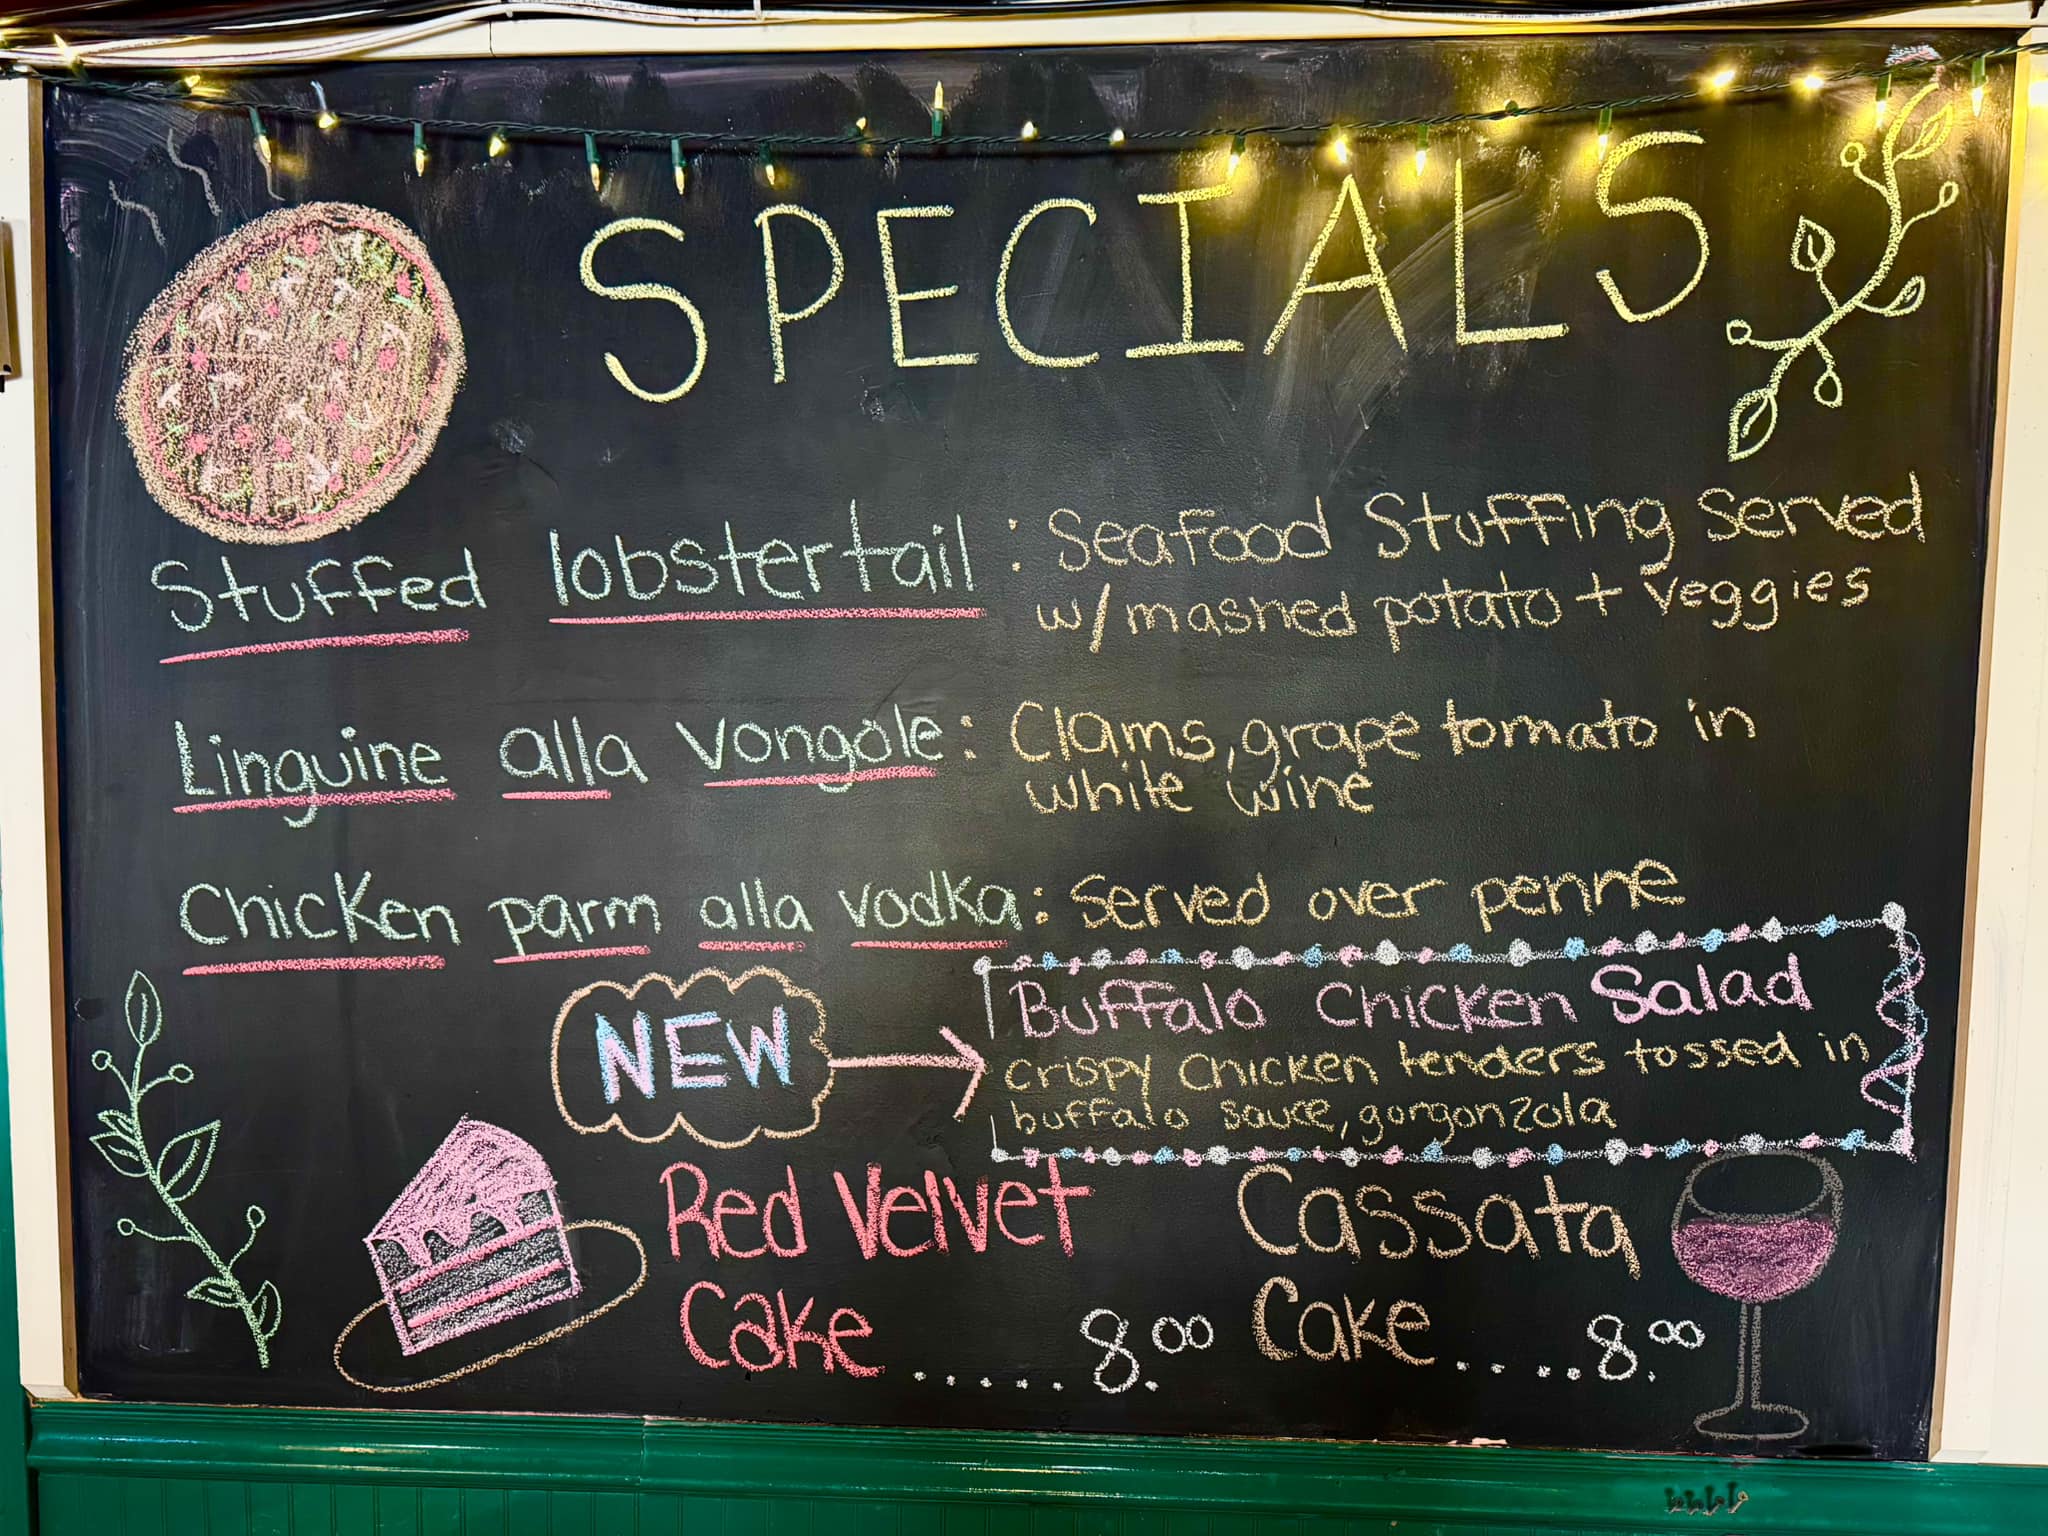 SPECIALS
Stuffed lobstertail : Seafood Stuffing served
w/ mashed potato + veggies
Linguine alla Vongole : Clams, grape tomato in
white wine
Chicken parm alla vodka : Served over penne
NEW
Buffalo Chicken Salad
Crispy Chicken tenders tossed in
buffalo sauce, gorgonzola
Red Velvet
Cake ..... 8.00
Cassata
Cake .... 8.00